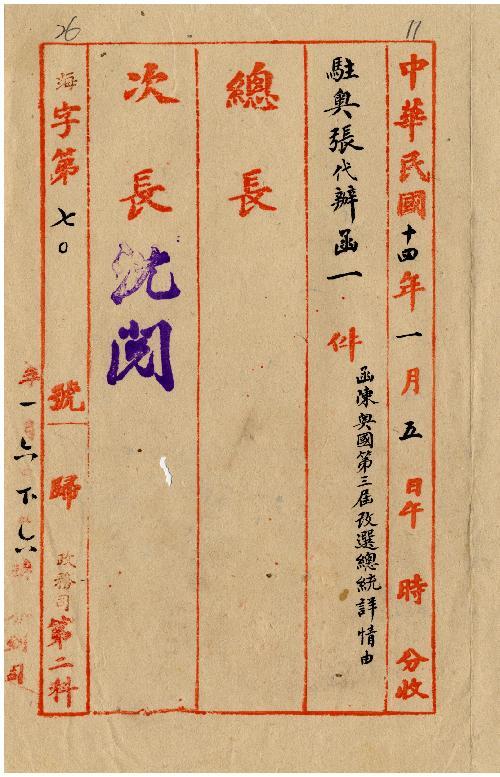 26
11
中華民國十四年一月五日午時分收
駐奧張代辦函一件
函陳奧國第三屆改選總統詳情由
總長
次長
沈閱
海字第七〇號歸政務司第二科
年一月六下六